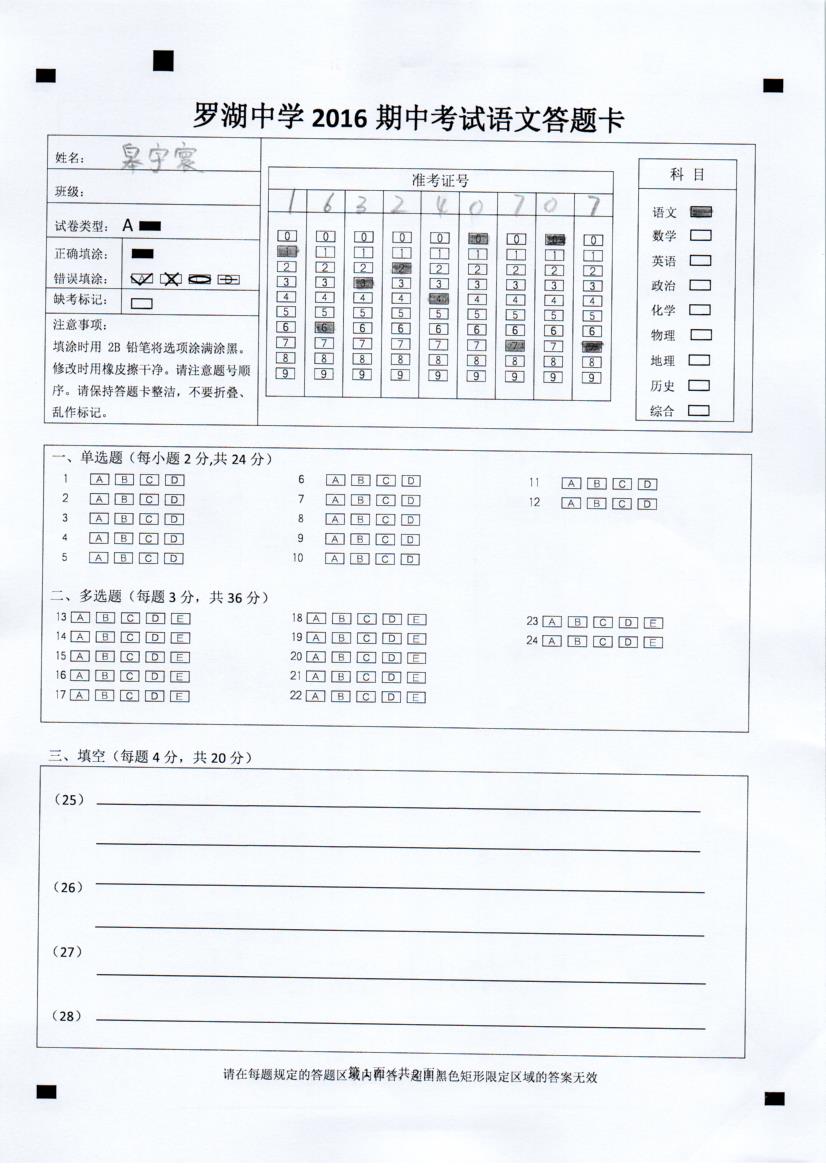 罗湖中学 2016 期中考试语文答题卡
姓名：
宇寰
班级：
试卷类型： A
正确填涂：
错误填涂：
缺考标记：
注意事项：
填涂时用 2B 铅笔将选项涂满涂黑。
修改时用橡皮擦干净。请注意题号顺
序。请保持答题卡整洁，不要折叠、
乱作标记。
准考证号
1 6 3 2 4 0 7 0 7
0 0 0 0 0 0 0 0 0
1 1 1 1 1 1 1 1 1
2 2 2 2 2 2 2 2 2
3 3 3 3 3 3 3 3 3
4 4 4 4 4 4 4 4 4
5 5 5 5 5 5 5 5 5
6 6 6 6 6 6 6 6 6
7 7 7 7 7 7 7 7 7
8 8 8 8 8 8 8 8 8
9 9 9 9 9 9 9 9 9
科 目
语文
数学
英语
政治
化学
物理
地理
历史
综合
一、单选题（每小题 2 分,共 24 分）
1 A B C D
2 A B C D
3 A B C D
4 A B C D
5 A B C D
6 A B C D
7 A B C D
8 A B C D
9 A B C D
10 A B C D
11 A B C D
12 A B C D
二、多选题（每题 3 分，共 36 分）
13 A B C D E
14 A B C D E
15 A B C D E
16 A B C D E
17 A B C D E
18 A B C D E
19 A B C D E
20 A B C D E
21 A B C D E
22 A B C D E
23 A B C D E
24 A B C D E
三、填空（每题 4 分，共 20 分）
（25）
（26）
（27）
（28）
请在每题规定的答题区域内作答，超出黑色矩形限定区域的答案无效
第 1 页（共 2 页）